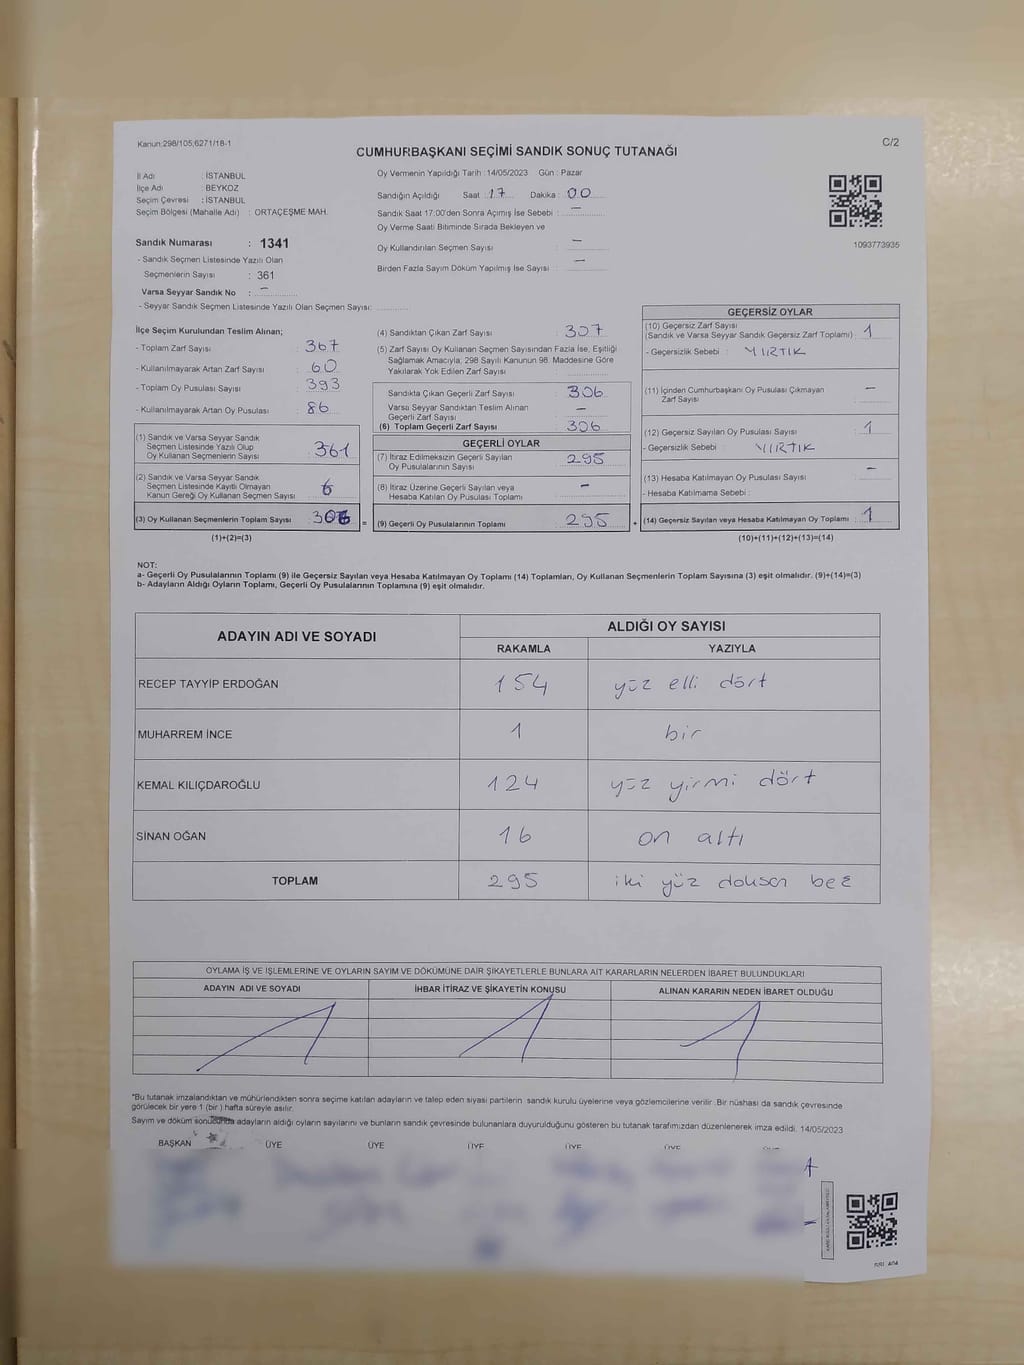 Kanun:298/105;6271/18-1
C/2
CUMHURBAŞKANI SEÇİMİ SANDIK SONUÇ TUTANAĞI
İl Adı : İSTANBUL
İlçe Adı : BEYKOZ
Seçim Çevresi : İSTANBUL
Seçim Bölgesi (Mahalle Adı) : ORTAÇEŞME MAH.
Oy Vermenin Yapıldığı Tarih : 14/05/2023 Gün : Pazar
Sandığın Açıldığı Saat : 17 Dakika : 00
Sandık Saat 17:00'den Sonra Açımış İse Sebebi : —
Oy Verme Saati Bitiminde Sırada Bekleyen ve
Oy Kullandırılan Seçmen Sayısı : —
Birden Fazla Sayım Döküm Yapılmış İse Sayısı : —
1093773935
Sandık Numarası : 1341
- Sandık Seçmen Listesinde Yazılı Olan
Seçmenlerin Sayısı : 361
Varsa Seyyar Sandık No : —
- Seyyar Sandık Seçmen Listesinde Yazılı Olan Seçmen Sayısı:
İlçe Seçim Kurulundan Teslim Alınan;
- Toplam Zarf Sayısı : 367
- Kullanılmayarak Artan Zarf Sayısı : 60
- Toplam Oy Pusulası Sayısı : 393
- Kullanılmayarak Artan Oy Pusulası : 86
(1) Sandık ve Varsa Seyyar Sandık
Seçmen Listesinde Yazılı Olup
Oy Kullanan Seçmenlerin Sayısı 361
(2) Sandık ve Varsa Seyyar Sandık
Seçmen Listesinde Kayıtlı Olmayan
Kanun Gereği Oy Kullanan Seçmen Sayısı 6
(3) Oy Kullanan Seçmenlerin Toplam Sayısı 306
(1)+(2)=(3)
(4) Sandıktan Çıkan Zarf Sayısı : 307
(5) Zarf Sayısı Oy Kullanan Seçmen Sayısından Fazla İse, Eşitliği
Sağlamak Amacıyla; 298 Sayılı Kanunun 98. Maddesine Göre
Yakılarak Yok Edilen Zarf Sayısı :
Sandıkta Çıkan Geçerli Zarf Sayısı : 306
Varsa Seyyar Sandıktan Teslim Alınan
Geçerli Zarf Sayısı : —
(6) Toplam Geçerli Zarf Sayısı : 306
GEÇERLİ OYLAR
(7) İtiraz Edilmeksizin Geçerli Sayılan
Oy Pusulalarının Sayısı : 295
(8) İtiraz Üzerine Geçerli Sayılan veya
Hesaba Katılan Oy Pusulası Toplamı : —
= (9) Geçerli Oy Pusulalarının Toplamı : 295 +
GEÇERSİZ OYLAR
(10) Geçersiz Zarf Sayısı
(Sandık ve Varsa Seyyar Sandık Geçersiz Zarf Toplamı) : 1
- Geçersizlik Sebebi : YIRTIK
(11) İçinden Cumhurbaşkanı Oy Pusulası Çıkmayan
Zarf Sayısı : —
(12) Geçersiz Sayılan Oy Pusulası Sayısı : 1
- Geçersizlik Sebebi : YIRTIK
(13) Hesaba Katılmayan Oy Pusulası Sayısı : —
- Hesaba Katılmama Sebebi :
(14) Geçersiz Sayılan veya Hesaba Katılmayan Oy Toplamı : 1
(10)+(11)+(12)+(13)=(14)
NOT:
a- Geçerli Oy Pusulalarının Toplamı (9) ile Geçersiz Sayılan veya Hesaba Katılmayan Oy Toplamı (14) Toplamları, Oy Kullanan Seçmenlerin Toplam Sayısına (3) eşit olmalıdır. (9)+(14)=(3)
b- Adayların Aldığı Oyların Toplamı, Geçerli Oy Pusulalarının Toplamına (9) eşit olmalıdır.
ADAYIN ADI VE SOYADI ALDIĞI OY SAYISI
RAKAMLA YAZIYLA
RECEP TAYYİP ERDOĞAN 154 yüz elli dört
MUHARREM İNCE 1 bir
KEMAL KILIÇDAROĞLU 124 yüz yirmi dört
SİNAN OĞAN 16 on altı
TOPLAM 295 iki yüz doksan beş
OYLAMA İŞ VE İŞLEMLERİNE VE OYLARIN SAYIM VE DÖKÜMÜNE DAİR ŞİKAYETLERLE BUNLARA AİT KARARLARIN NELERDEN İBARET BULUNDUKLARI
ADAYIN ADI VE SOYADI İHBAR İTİRAZ VE ŞİKAYETİN KONUSU ALINAN KARARIN NEDEN İBARET OLDUĞU
*Bu tutanak imzalandıktan ve mühürlendikten sonra seçime katılan adayların ve talep eden siyasi partilerin sandık kurulu üyelerine veya gözlemcilerine verilir. Bir nüshası da sandık çevresinde
görülecek bir yere 1 (bir) hafta süreyle asılır.
Sayım ve döküm sonucunda adayların aldığı oyların sayılarını ve bunların sandık çevresinde bulunanlara duyurulduğunu gösteren bu tutanak tarafımızdan düzenlenerek imza edildi. 14/05/2023
BAŞKAN ÜYE ÜYE ÜYE ÜYE ÜYE